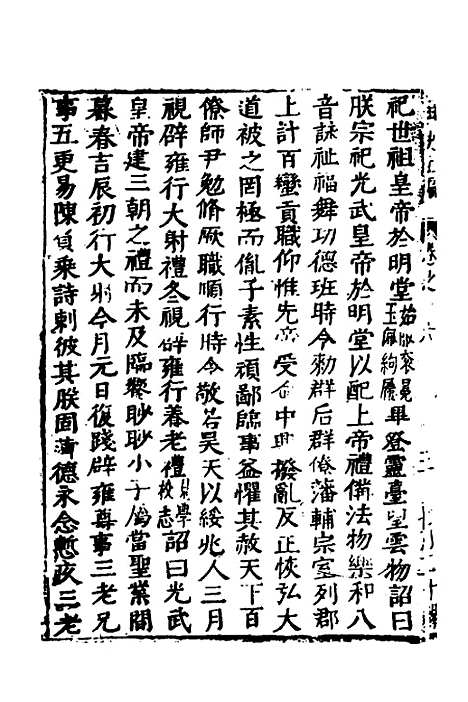 祀世祖皇帝於明堂始服衮冕玉佩絇屨畢登靈臺望雲物詔曰
朕宗祀光武皇帝於明堂以配上帝禮備法物樂和八
音詠祉福舞功德班時令勑群后群僚藩輔宗室列郡
上計百蠻貢職仰惟先帝受命中興撥亂反正恢弘大
道被之罔極而胤子素性頑鄙臨事益懼其赦天下百
僚師尹勉脩厥職順行時令敬若昊天以綏兆人三月
視辟雍行大射禮冬視辟雍行養老禮見學校志詔曰光武
皇帝建三朝之禮而未及臨饗眇眇小子屬當聖業閒
暮春吉辰初行大射令月元日復踐辟雍尊事三老兄
事五更易陳負乘詩刺彼其朕固薄德永念慙疚三老